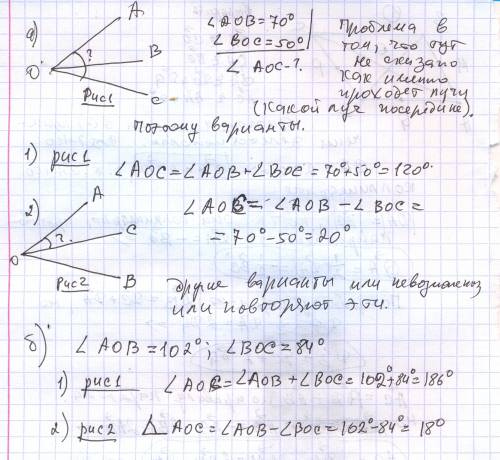 а)
A
B
C
O
?
Рис1
∠AOB=70°
∠BOC=50°
∠AOC-?
Проблема в
том, что тут
не сказано
как именно
проходят лучи
(какой луч посередине).
Поэтому варианты.
1) рис1 ∠AOC=∠AOB+∠BOC=70°+50°=120°
2)
A
C
B
O
?
Рис2
∠AOC=∠AOB-∠BOC=
=70°-50°=20°
другие варианты или невозможны
или повторяют эти.
б) ∠AOB=102°; ∠BOC=84°
1) рис1 ∠AOC=∠AOB+∠BOC=102°+84°=186°
2) рис2 ∠AOC=∠AOB-∠BOC=102°-84°=18°